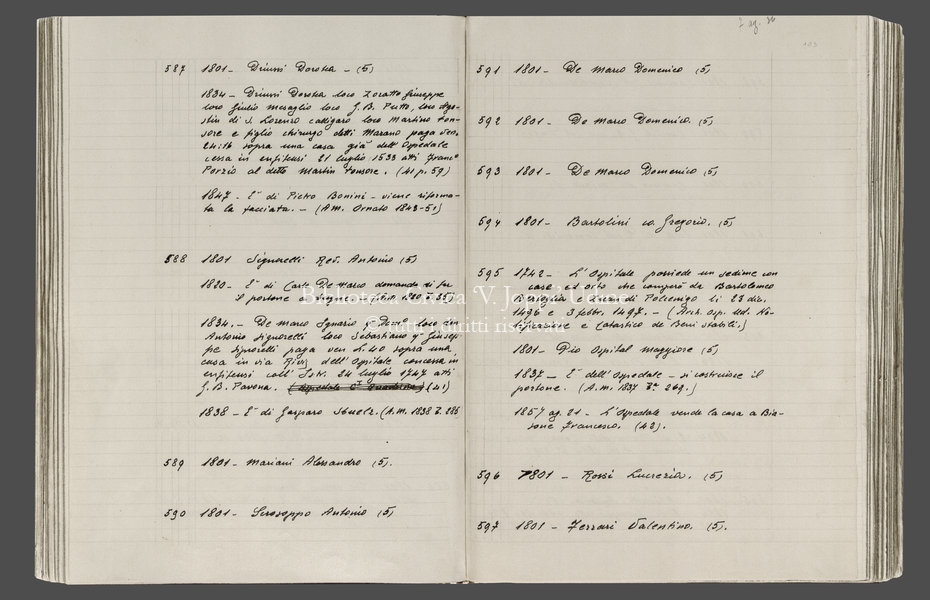 587 1801 - Driussi Dorotea - (5)
1834 - Driussi Dorotea loco Zoratto Giuseppe
loco Giulio Mesaglio loco G.B. Putto, loco Ago-
stin di S. Lorenzo calligaro loco Martino ton-
sore e figlio chirurgo detti Marano paga ven.
24:16 sopra una casa già dell'Ospedale
cessa in enfiteusi 21 luglio 1533 atti Franc.º
Porzio al detto Martin tonsore. (41 p. 59)
1847 - È di Pietro Bonini - viene riforma-
ta la facciata. - (A.M. Ornato 1843-51)
588 1801 Signoretti Rev. Antonio (5)
1820 - È di Carlo De Marco domanda di far
il portone
1834. - De Marco Ignazio loco
Antonio Signoretti loco Sebastiano q. Giusep-
pe Signoretti paga ven L. 40 sopra una
casa in via Rivis dell'Ospitale concessa in
enfiteusi coll'Istr. 24 luglio 1747 atti
G.B. Pavona. (41)
1838 - È di Gasparo (A.M. 1838 F. 286
589 1801 - Mariani Alessandro (5).
590 1801 - Scrosoppo Antonio (5)
591 1801 - De Marco Domenico (5)
592 1801 - De Marco Domenico. (5)
593 1801 - De Marco Domenico (5)
594 1801 - Bartolini co. Gregorio. (5)
595 1742 - L'Ospitale possiede un sedime con
case ed orto che comperò da Bartolomeo
di Polcenigo li 23 dic.
1496 e 3 febbr. 1497. - (Arch. osp. Ud. No-
e Catastico de Beni stabili.)
1801 - Pio Ospital maggiore (5)
1837 - È dell'Ospedale - si costruisce il
portone. (A.M. 1837 269.)
1857 ag. 21 - L'Ospedale vende la casa a Bia-
sone Francesco. (42).
596 1801 - Rossi Lucrezia. (5)
597 1801 - Ferrari Valentino. (5).
Biblioteca Civica V. Joppi Udine
© tutti i diritti riservati